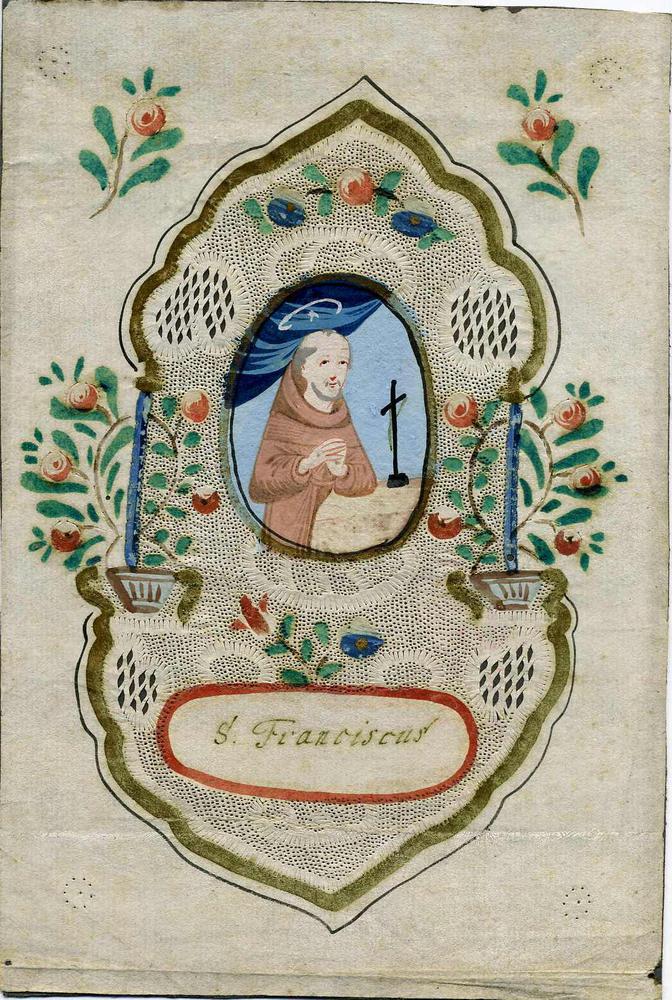 S. Franciscus